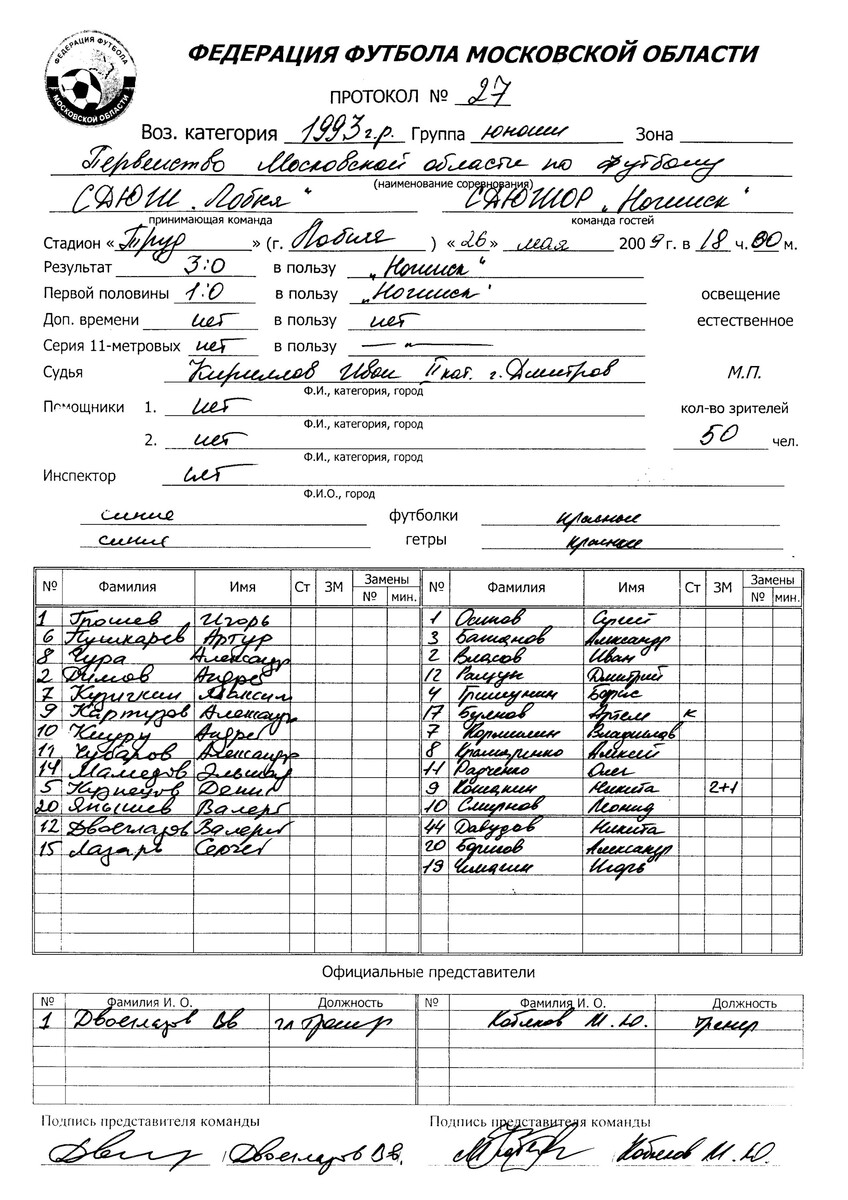 ФЕДЕРАЦИЯ ФУТБОЛА МОСКОВСКОЙ ОБЛАСТИ
ФЕДЕРАЦИЯ ФУТБОЛА МОСКОВСКОЙ ОБЛАСТИ
ПРОТОКОЛ № 27
Воз. категория 1993 г.р. Группа юноши Зона
Первенство Московской области по футболу
(наименование соревнования)
СДЮШ „Лобня“ СДЮШОР „Ногинск“
принимающая команда команда гостей
Стадион « Труд » (г. Лобня ) « 26 » мая 2009 г. в 18 ч. 00 м.
Результат 3:0 в пользу „Ногинск“
Первой половины 1:0 в пользу „Ногинск“ освещение
Доп. времени нет в пользу нет естественное
Серия 11-метровых нет в пользу — „ —
Судья Кириллов Иван II кат. г. Дмитров М.П.
Ф.И., категория, город
Помощники 1. нет кол-во зрителей
Ф.И., категория, город
2. нет 50 чел.
Ф.И., категория, город
Инспектор нет
Ф.И.О., город
синие футболки красные
синие гетры красные
№ Фамилия Имя Ст ЗМ Замены № мин. № Фамилия Имя Ст ЗМ Замены № мин.
1 Грошев Игорь 1 Осипов Сергей
6 Пушкарев Артур 3 Башанов Александр
8 Чура Александр 2 Власов Иван
2 Димов Андрей 12 Дмитрий
7 Кузичкин Максим 4 Гришунин Борис
9 Картузов Александр 17 Буянов Артем к
10 Андрей 7 Кормилин Владислав
11 Чубаров Александр 8 Крамаренко Алексей
14 Мамедов Эльшад 11 Радченко Олег
5 Кузнецов Денис 9 Кошанин Никита 2+1
20 Янышев Валерий 10 Смирнов Леонид
12 Двоеглазов Валерий 44 Давудов Никита
15 Лазарь Сергей 20 Борисов Александр
19 Чмагин Игорь
Официальные представители
№ Фамилия И. О. Должность № Фамилия И. О. Должность
1 Двоеглазов ВВ гл тренер Кобяков М. Ю. тренер
Подпись представителя команды Подпись представителя команды
Двоеглазов ВВ. Кобяков М. Ю.